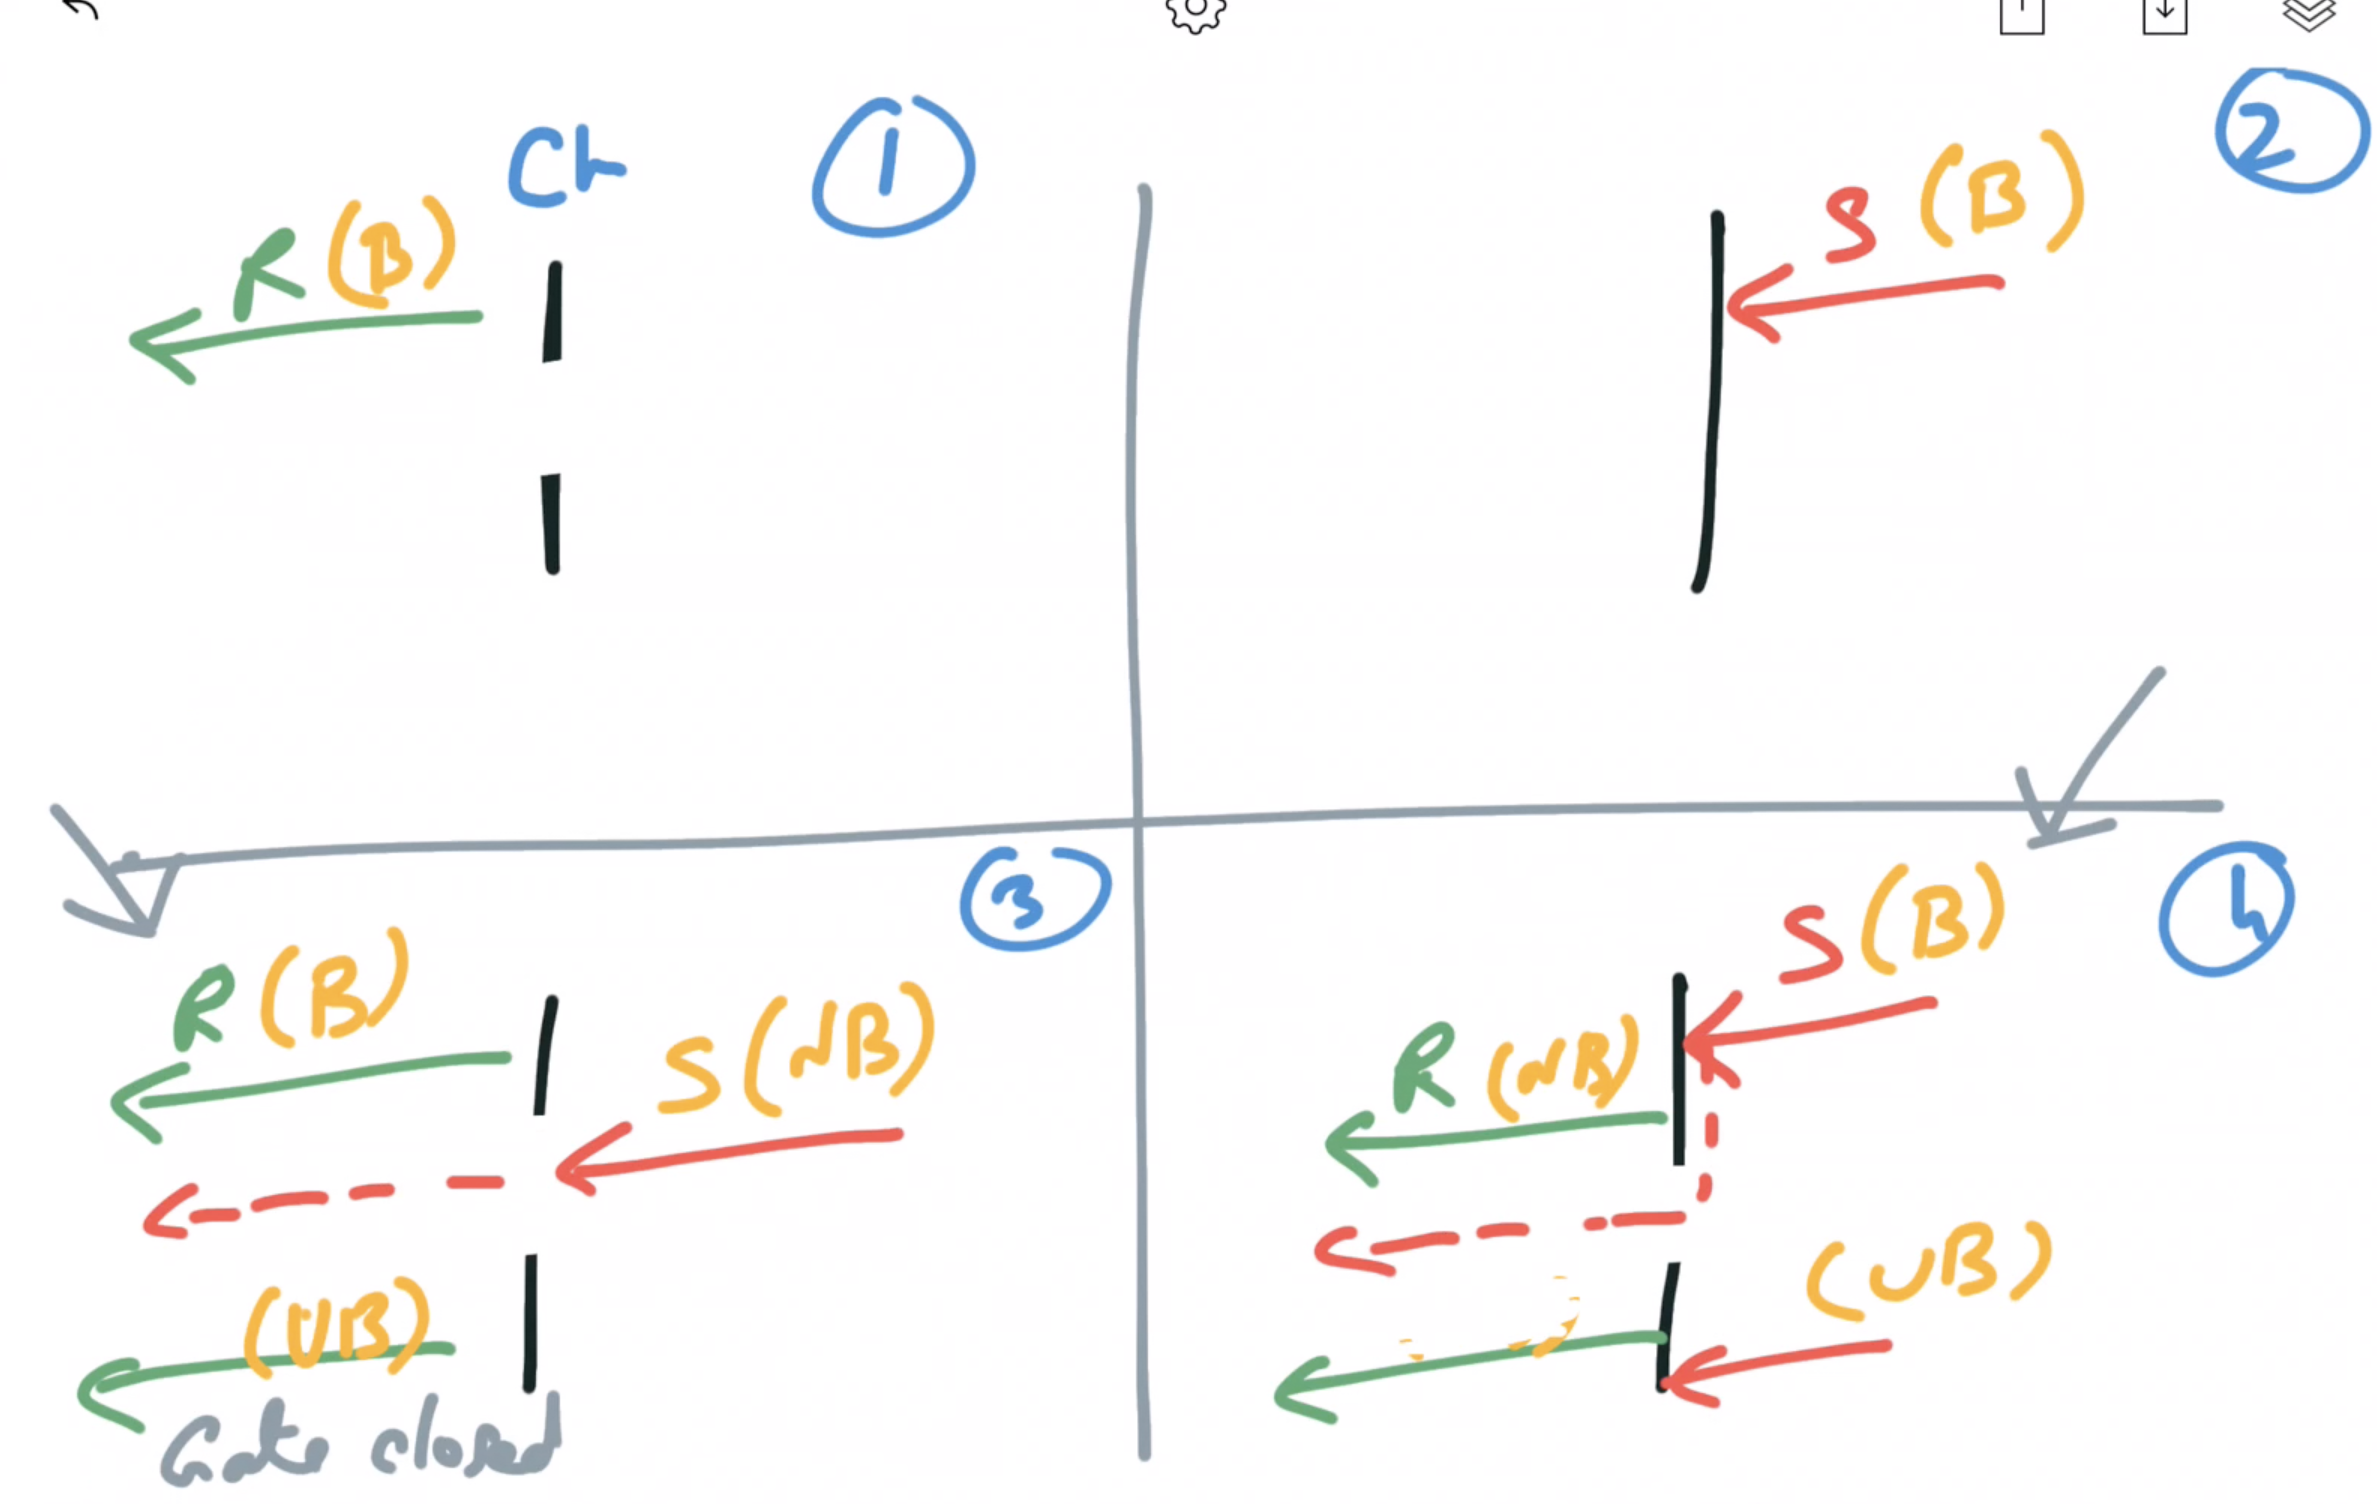 Ch
1
R (B)
2
S (B)
3
R (B)
S (NB)
(UB)
Gate closed
4
S (B)
R (NB)
(UB)